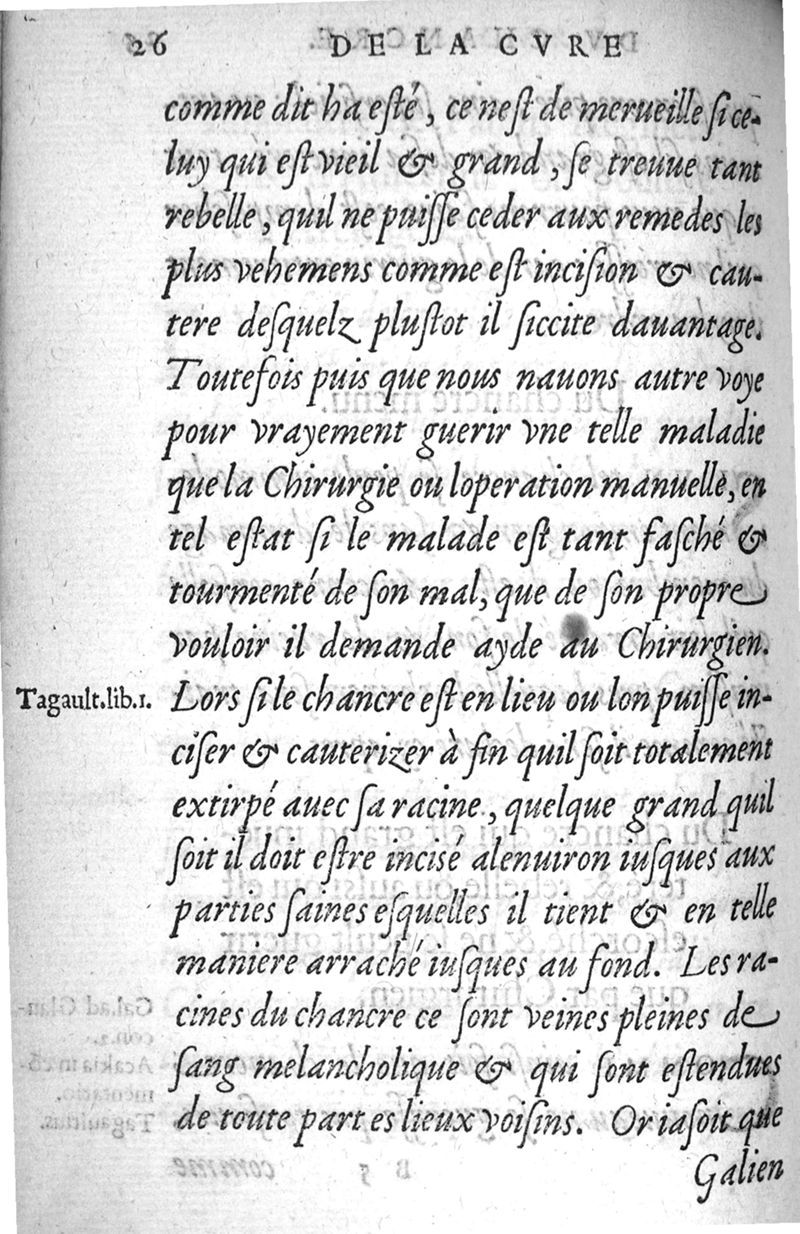 26 DE LA CVRE
comme dit ha eſté, ce neſt de merueille ſi ce-
luy qui eſt vieil & grand, ſe treuue tant
rebelle, quil ne puiſſe ceder aux remedes les
plus vehemens comme eſt inciſion & cau-
tere deſquelz pluſtot il ſiccite dauantage.
Toutefois puis que nous nauons autre voye
pour vrayement guerir vne telle maladie
que la Chirurgie ou loperation manuelle, en
tel eſtat ſi le malade eſt tant faſché &
tourmenté de ſon mal, que de ſon propre
vouloir il demande ayde au Chirurgien.
Tagault.lib.1. Lors ſi le chancre eſt en lieu ou lon puiſſe in-
ciſer & cauterizer à fin quil ſoit totalement
extirpé auec ſa racine, quelque grand quil
ſoit il doit eſtre inciſé alenuiron iuſques aux
parties ſaines eſquelles il tient & en telle
maniere arraché iuſques au fond. Les ra-
cines du chancre ce ſont veines pleines de
ſang melancholique & qui ſont eſtendues
de toute part es lieux voiſins. Or iaſoit que
Galien